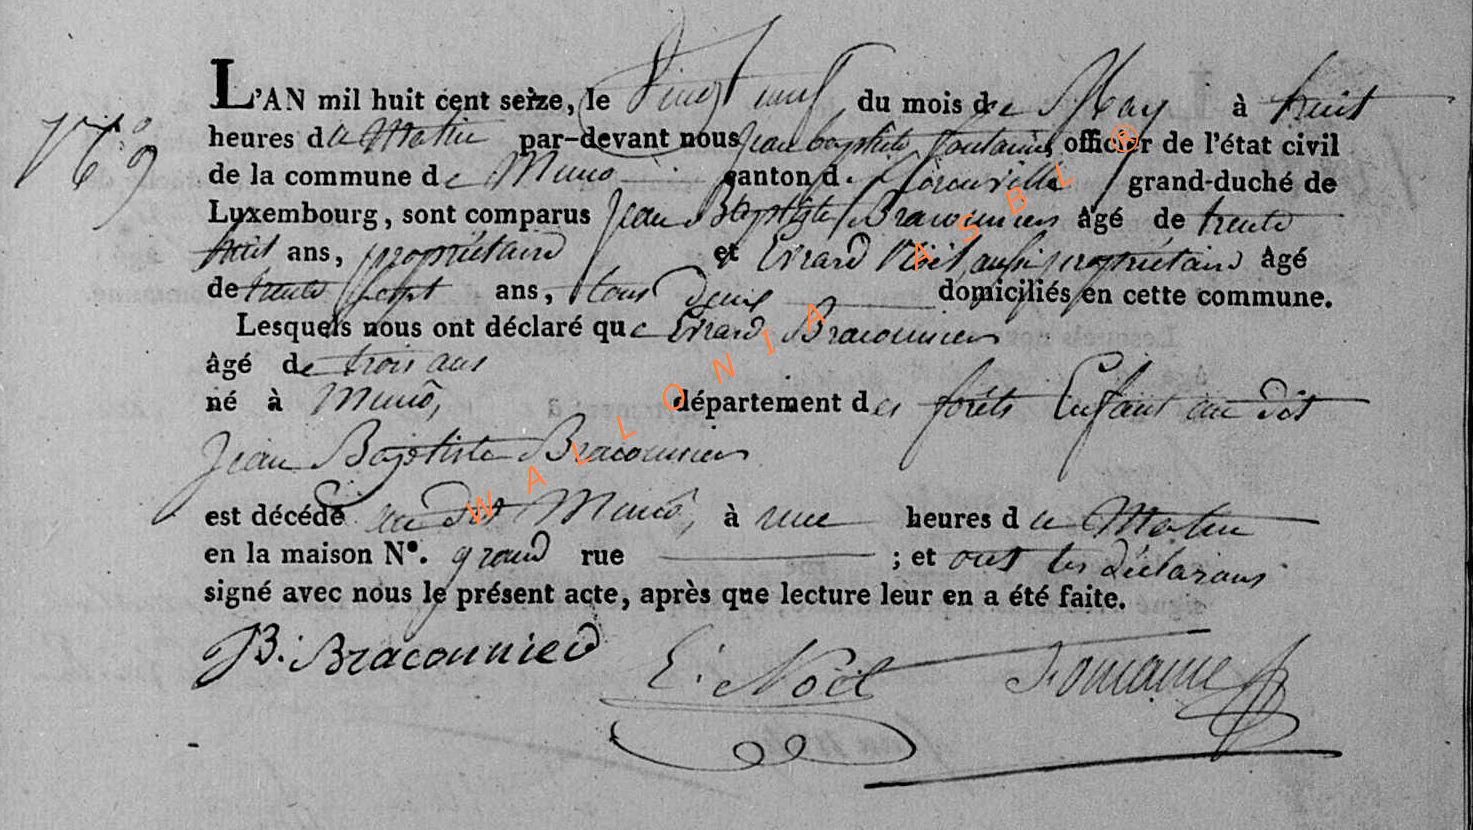 L'AN mil huit cent seize, le Vingt neuf du mois de May à huit
N.o 9
heures du Matin par-devant nous Jean baptiste fontaine, officier de l'état civil
de la commune de Muno canton de florenville grand-duché de
Luxembourg, sont comparus Jean Baptiste Braconnier âgé de trente
huit ans, propriétaire et Evrard Noël, aussi propriétaire âgé
de trente sept ans, tous deux domiciliés en cette commune.
Lesquels nous ont déclaré que Evrard Braconnier
âgé de trois ans
né à Muno, département des forêts Enfant au dit
Jean Baptiste Braconnier
est décédé au dit Muno, à une heures du Matin
en la maison N°. grand rue ; et ont les déclarans
signé avec nous le présent acte, après que lecture leur en a été faite.
B. Braconnier E. Noël Fontaine
WALLONIA ASBL ®